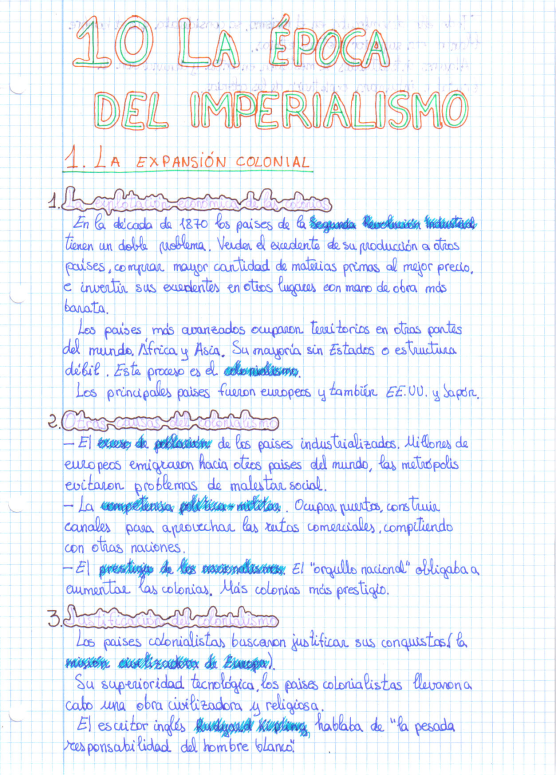 10 LA ÉPOCA
DEL IMPERIALISMO
1. LA EXPANSIÓN COLONIAL
1. La explotación económica de las colonias
En la década de 1870 los países de la Segunda Revolución Industrial
tienen un doble problema. Vender el excedente de su producción a otros
países, comprar mayor cantidad de materias primas al mejor precio,
e invertir sus excedentes en otros lugares con mano de obra más
barata.
Los países más avanzados ocuparon territorios en otras partes
del mundo. África y Asia. Su mayoría sin Estados o estructura
débil. Este proceso es el colonialismo.
Los principales países fueron europeos y también EE.UU. y Japón.
2. Otras causas del colonialismo
- El exceso de población de los países industrializados. Millones de
europeos emigraron hacia otros países del mundo, las metrópolis
evitaron problemas de malestar social.
- La competencia política-militar. Ocupar puertos, construir
canales para aprovechar las rutas comerciales, compitiendo
con otras naciones.
- El prestigio de los nacionalismos. El "orgullo nacional" obligaba a
aumentar las colonias. Más colonias más prestigio.
3. Justificación del colonialismo
Los países colonialistas buscaron justificar sus conquistas (la
misión civilizadora de Europa).
Su superioridad tecnológica, los países colonialistas llevaron a
cabo una obra civilizadora y religiosa.
El escritor inglés Rudyard Kipling, hablaba de "la pesada
responsabilidad del hombre blanco".